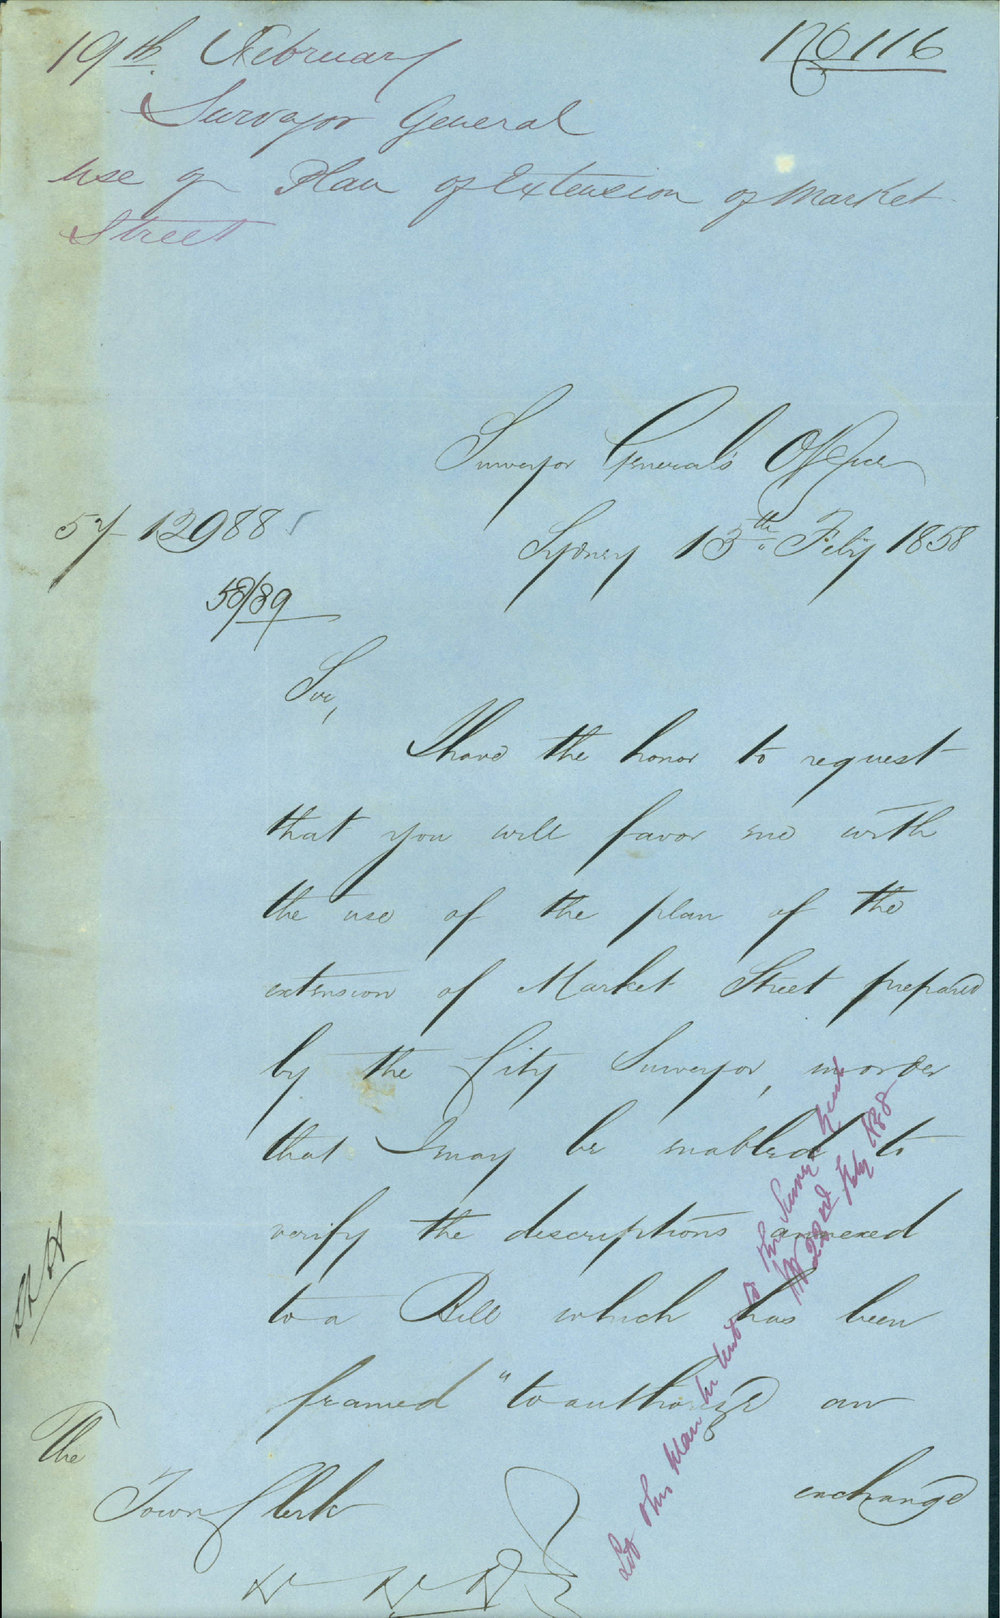 19th. February
No 116
Surveyor General
use of Plan of Extension of Market
Street
Surveyor General's Office
57-12988
Sydney 13th. Feby 1858
58/89
Sir,
I have the honor to request
that you will favor me with
the use of the plan of the
extension of Market Street prepared
by the City Surveyor, in order
that I may be enabled to
verify the descriptions annexed
to a Bill which has been
framed "to authorize an
exchange
The
Town Clerk
Let this plan be lent to the Survey
22nd Feby 1858